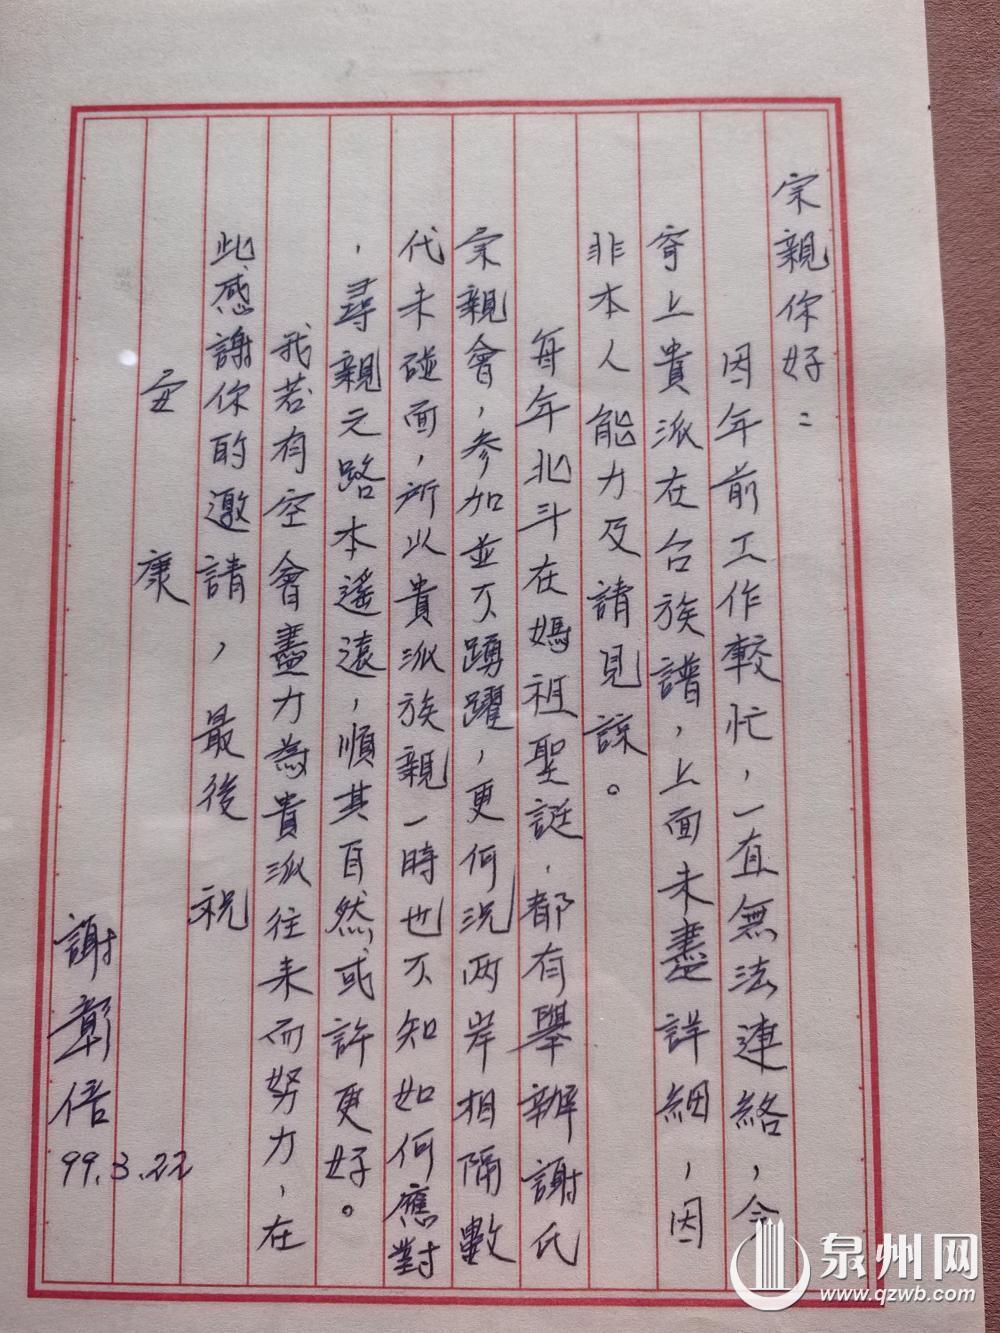 宗親你好：
因年前工作較忙，一直無法連絡，今
寄上貴派在台族譜，上面未盡詳細，因
非本人能力及請見諒。
每年北斗在媽祖聖誕，都有舉辦謝氏
宗親會，參加並不踴躍，更何況兩岸相隔數
代未碰面，所以貴派族親一時也不知如何應對
，尋親之路本遙遠，順其自然，或許更好。
我若有空會盡力為貴派往來而努力，在
此感謝你的邀請，最後 祝
安 康
謝彰
99.3.22
泉州网
www.qzwb.com